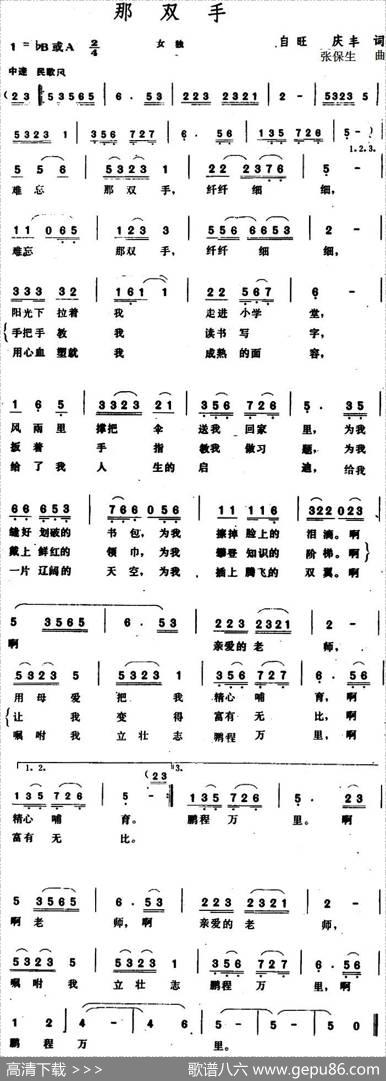 那双手
1=♭B或A 2/4 女独 自旺 庆丰 词
中速 民歌风 张保生 曲
(23 53565 | 6·53 | 2321 2321 | 2 - | 5323 5 |
5323 1 | 356 726 | 6·56 | 135 726 | 5 -) |
1.2.3.
5 5 6 | 5323 1 | 22 2376 | 5 - |
难忘 那双手，纤纤细细，
11 065 | 123 3 | 556 6653 | 2 - |
难忘 那双手，纤纤细细，
333 32 | 161 1 | 22 567 | 6 - |
阳光下 拉着 我 走进 小学 堂，
手把手 教 我 读书 写 字，
用心血 塑就 我 成熟的面 容，
1 6 5 | 3323 21 | 356 726 | 5· 35 |
风雨里 撑把 伞 送我 回家 里，为我
扳着 手 指 教我 做习 题，为我
给了我 人 生的启 迪，给我
66 653 | 766 056 | 11 116 | 322 023 |
缝好 划破的 书 包，为我 擦掉 脸上的 泪滴。啊
戴上 鲜红的 领 巾，为我 攀登 知识的 阶梯。啊
一片 辽阔的 天 空，为我 插上 腾飞的 双翼。啊
5 3565 | 6· 53 | 223 2321 | 2 - |
啊 亲爱的 老 师，
5323 5 | 5323 1 | 356 726 | 6· 56 |
用母爱 把 我 精心 哺 育，啊
让 我 变 得 富有 无 比，啊
嘱咐我 立壮志 鹏程 万 里，啊
1.2. (23 3.
135 726 | 5 - :| 135 726 | 5· 23 |
精心 哺 育。 鹏程万 里。啊
富有 无 比。
5 3565 | 6· 53 | 223 2321 | 2 - |
啊 老 师，啊 亲爱的 老 师，
5323 5 | 5323 1 | 356 726 | 6· 56 |
嘱咐 我 立壮志 鹏程 万 里，啊
1 2 | 4 - | 4 - | 5 - | 5 - | 5 - | 50 ‖
鹏 程 万 里。
高清下载 >>> 歌谱八六 www.gepu86.com